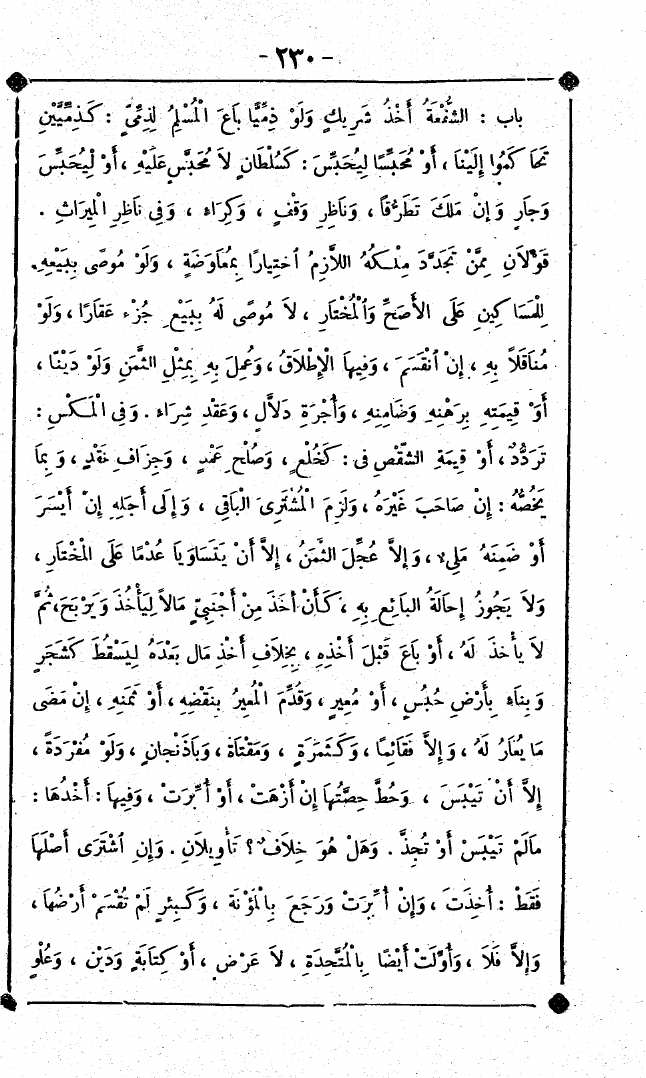 - ٢٣٠ -
باب : الشُّفْعَةُ أَخْذُ شَرِيكٍ وَلَوْ ذِمِّيًّا بَاعَ الْمُسْلِمُ لِذِمِّىٍّ : كَذِمِّيَّيْنِ
تَحَاكَمُوا إِلَيْنَا ، أَوْ مُحَبِّسًا لِيُحَبِّسَ : كَسُلْطَانٍ لاَ مُحَبَّسٍ عَلَيْهِ ، أَوْ لِيُحَبِّسَ
وَجَارٍ وَإِنْ مَلَكَ تَطَرُّقًا ، وَنَاظِرِ وَقْفٍ ، وَكِرَاءٍ ، وَفِى نَاظِرِ الْمِيرَاثِ .
قَوْلاَنِ مِمَّنْ تَجَدَّدَ مِلْكُهُ اللاَّزِمُ اخْتِيارًا بِمُعَاوَضَةٍ ، وَلَوْ مُوصًى بِبَيْعِهِ.
لِلْمَسَاكِينِ عَلَى الأَصَحِّ وَالْمُخْتَارِ ، لاَ مُوصًى لَهُ بِبَيْعِ جُزْءٍ عَقَارًا ، وَلَوْ
مُنَاقَلاً بِهِ ، إِنْ انْقَسَمَ ، وَفِيهَا الْإِطْلاَقُ ، وَعُمِلَ بِهِ بِمِثْلِ الثَّمَنِ وَلَوْ دَيْنًا ،
أَوْ قِيمَتِهِ بِرَهْنِهِ وَضَامِنِهِ ، وَأُجْرَةِ دَلاَّلٍ ، وَعَقْدِ شِرَاءٍ . وَفِى الْمَكْسِ :
تَرَدُّدٌ ، أَوْ قِيمَةِ الشِّقْصِ فى : كَخُلْعٍ ، وَصُلْحِ عَمْدٍ ، وَجِزَافِ نَقْدٍ ، وَبِمَا
يَخُصُّهُ : إِنْ صَاحَبَ غَيْرَهُ ، وَلَزِمَ الْمُشْتَرِىَ الْبَاقِى ، وَإِلَى أَجَلِهِ إِنْ أَيْسَرَ
أَوْ ضَمِنَهُ مَلِىءٌ ، وَإِلاَّ عُجِّلَ الثَّمَنُ ، إِلاَّ أَنْ يَتَسَاوَيَا عُدْمًا عَلَى الْمُخْتَارِ ،
وَلاَ يَجُوزُ إِحَالَةُ البَائِعِ بِهِ ، كَأَنْ أَخَذَ مِنْ أَجْنَبِىٍّ مَالاً لِيَأْخُذَ وَيَرْبَحَ، ثُمَّ
لاَ يأْخُذَ لَهُ ، أَوْ بَاعَ قَبْلَ أَخْذِهِ ، بِخِلاَفِ أَخْذِ مَالٍ بَعْدَهُ لِيَسْقُطَ كَشَجَرٍ
وَبِنَاءٍ بِأَرْضِ حُبُسٍ ، أَوْ مُعِيرٍ ، وَقُدِّمَ الْمُعِيرُ بِنَقْضِهِ ، أَوْ ثَمَنِهِ ، إِنْ مَضَى
مَا يُعَارُ لَهُ ، وَإِلاَّ فَقَائِمًا ، وَكَثَمَرَةٍ ، وَمَقْتَاةٍ ، وَبَاذَنْجَانٍ ، وَلَوْ مُفْرَدَةً ،
إِلاَّ أَنْ تَيْبَسَ ، وَحُطَّ حِصَّتُهَا إِنْ أَزْهَتْ ، أَوْ أُبِّرَتْ ، وَفِيهَا : أَخْذُهَا :
مَالَمْ تَيْبَسْ أَوْ تُجَذَّ . وَهَلْ هُوَ خِلاَفٌ ؟ تَأْوِيلاَنِ . وَإِنِ اشْتَرَى أَصْلَهَا
فَقَطْ : أُخِذَتْ ، وَإِنْ أُبِّرَتْ وَرَجَعَ بِالْمَؤْنَةِ ، وَكَبِئْرٍ لَمْ تُقْسَمْ أَرْضُهَا ،
وَإِلاَّ فَلاَ ، وَأُوِّلَتْ أَيْضًا بِالْمُتَّحِدَةِ ، لاَ عَرْضٍ ، أَوْ كِتَابَةٍ وَدَيْنٍ ، وَعُلْوٍ